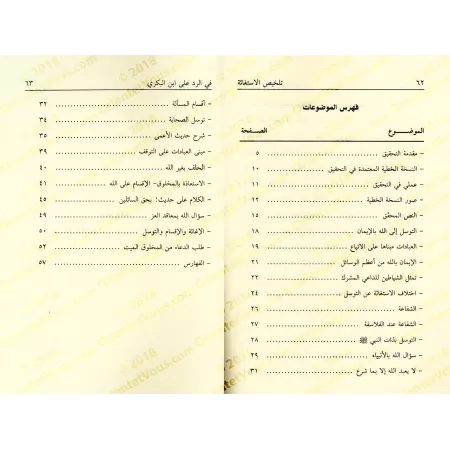 ٦٢ تلخيص الاستغاثة
فهرس الموضوعات
الموضـــوع الصـفـحـة
- مقدمة التحقيق ٥
- النسخة الخطية المعتمدة في التحقيق ١٠
- عملي في التحقيق ١١
- صور النسخة الخطية ١٢
- النص المحقق ١٥
- التوسل إلى الله بالإيمان ١٨
- العبادات مبناها على الاتباع ١٩
- الإيمان بالله من أعظم الوسائل ٢١
- تمثل الشياطين للداعي المشرك ٢٢
- اختلاف الاستغاثة عن التوسل ٢٤
- الشفاعة ٢٦
- الشفاعة عند الفلاسفة ٢٧
- التوسل بذات النبي ﷺ ٢٨
- سؤال الله بالأنبياء ٢٩
- لا يعبد الله إلا بما شرع ٣١
في الرد على ابن البكري ٦٣
- أقسام المسألة ٣٢
- توسل الصحابة ٣٤
- شرح حديث الأعمى ٣٥
- مبنى العبادات على التوقف ٣٩
- الحلف بغير الله ٤٠
- الاستعاذة بالمخلوق- الإقسام على الله ٤١
- الكلام على حديث؛ بحق السائلين ٤٥
- سؤال الله بمعاقد العز ٤٩
- الإغاثة والإقسام والتوسل ٥٠
- طلب الدعاء من المخلوق الميت ٥٢
- الفهارس ٥٧
© 2018